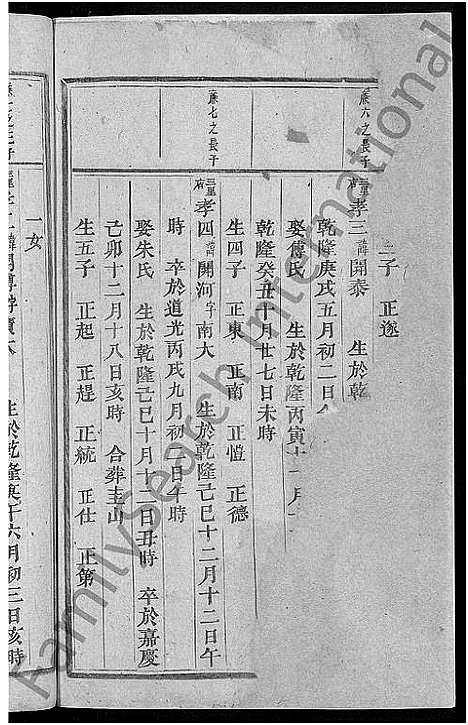 二子 正遂
廉六之長子
孝三諱開泰 生於乾
乾隆庚戌五月初二日
娶傅氏 生於乾隆丙寅十一月
乾隆癸丑十月廿七日未時
生四子 正東 正南 正愷 正德
廉七之長子
孝四諱開河字南大 生於乾隆己巳十二月十二日午
時 卒於道光丙戌九月初二日午時
娶朱氏 生於乾隆己巳十月十二日丑時 卒於嘉慶
己卯十二月十八日亥時 合葬圭山
生五子 正起 正趕 正統 正仕 正第
一女
生於乾隆庚午六月初三日亥時
FamilySearch International